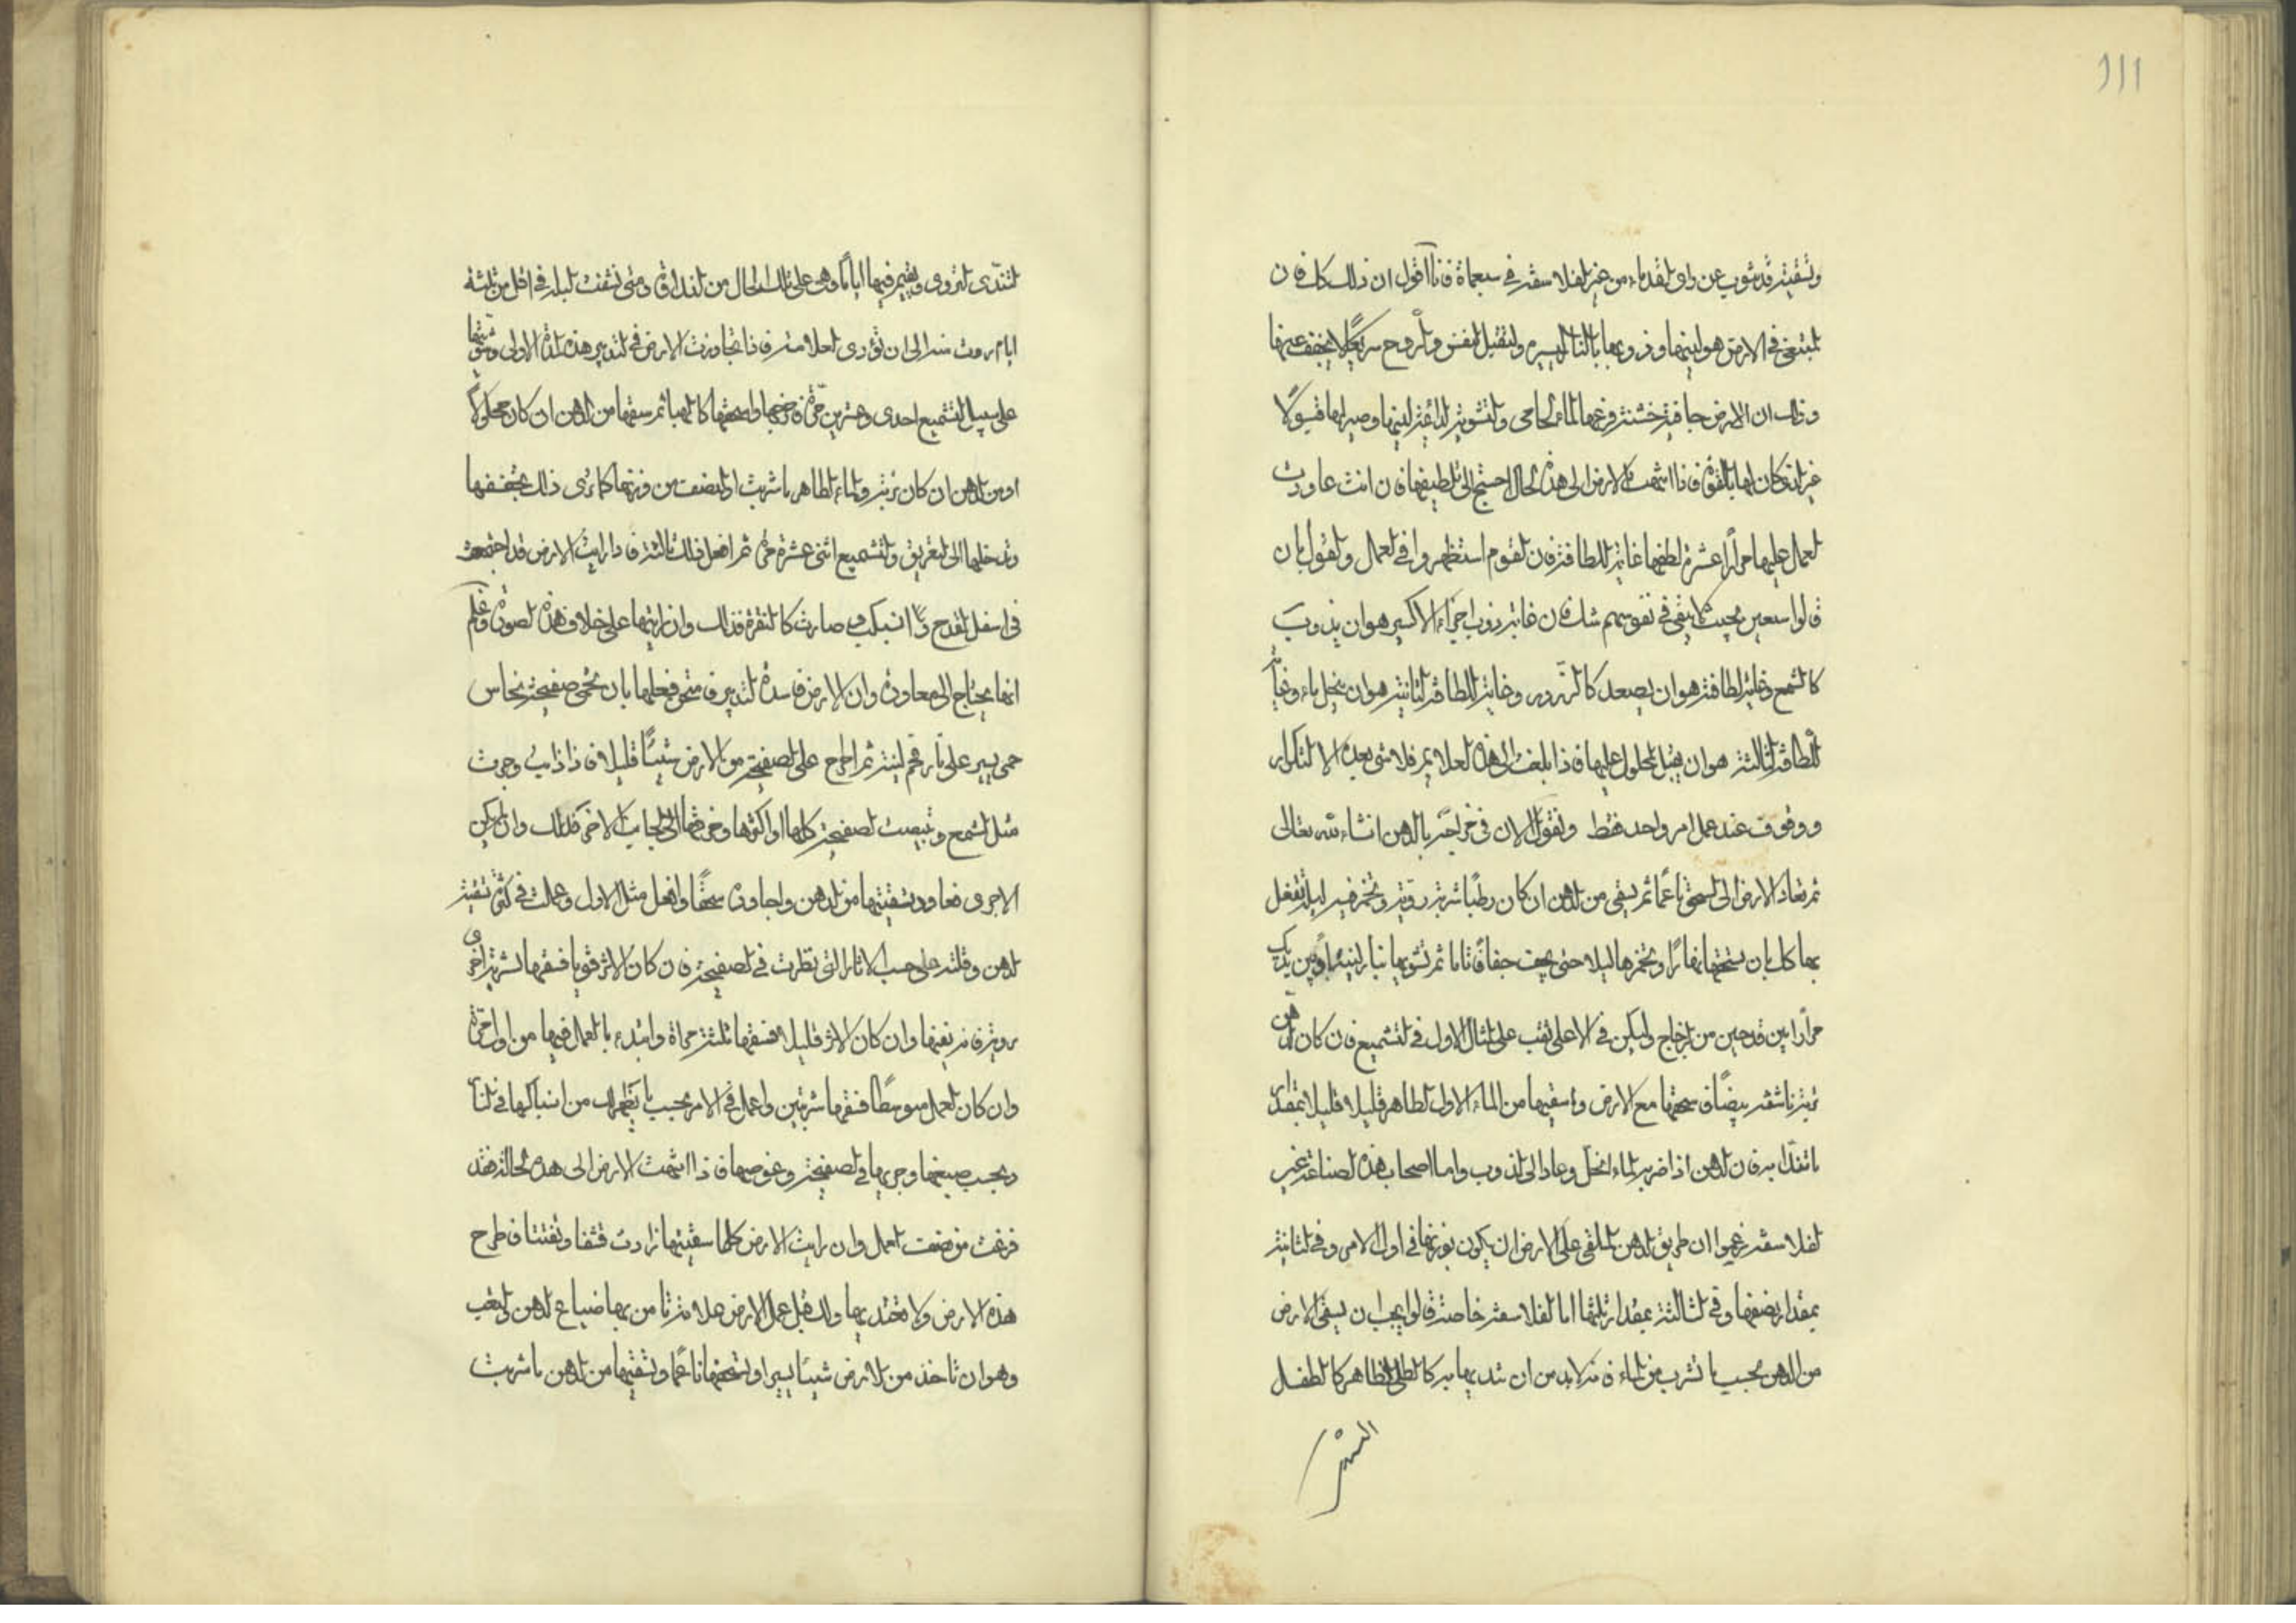 وتسقيته قد شوب عن راى القدماء من غير الفلاسفة فى سبعماة فانا اقول ان ذلك كله فان
المبتغى فى الارض هو لينها وذوبها بالنار اليسيرة ولتقبل النفس والروح سريعًا لا يخفف عنها
وذلك ان الارض جافة خشنة فزعها الماء الحامى والتشوية الدائمة لينها وصيرها قبولا
غير انه كان لها بالقوة فاذا انتهت الارض الى هذه الحال احتيج الى تلطيفها فان انت عاودت
العمل عليها مرارًا عشرة لطفها غاية اللطافة فان القوم استظهروا فى العمل والقول بان
قالوا سبعين بحيث لا يبقى فى نفوسهم شك فان غاية ذوب اجزاء الاكسير هو ان يذوب
كالشمع وغاية لطافته هو ان يصعد كالزرد وغاية اللطافة الثانية هو ان ينحل ماء وغاية
اللطافة الثالثة هو ان يقبل المحلول عليها فاذا بلغت الى هذه العلايم فلا شى بعده الا التكرار
ووقوف عند عمل امر واحد فقط ونقول الان فى مزاجه بالدهن انشاء الله تعالى
ثم تعاد الارض الى السحق ناعمًا ثم يسقى من الدهن ان كان رطبًا شربة روية وتخمر فيه ليلة تفعل
بها كل بان تسحقها نهارًا وتخمرها ليلا حتى يجف جفافًا تاما ثم تشويها بنار لينة
مرارًا بين قدحين من الزجاج وليكن فى الاعلى ثقب على المثال الاول فى التشميع فان كان الدهن
تربة ناشفة بيضًا فاسحقها مع الارض واسقيها من الماء الاول الطاهر قليلا قليلا بمقدار
ما تندا به فان الدهن اذا ضربه الماء انحل وعاد الى الذوب واما اصحاب هذه الصناعة غير
الفلاسفة زعموا ان طريق الدهن الملقى على الارض ان يكون بوزنها فى اول الامر وفى الثانية
بمقدار نصفها وفى الثالثة بمقدار ثلثها اما الفلاسفة خاصة قالوا يجب ان يسقى الارض
من الدهن بحسب ما تشرب من الماء فانه لابد من ان تدبرها به كالطلى الطاهر كالطفل
لتندى لتروى ويقيم فيها اياما وهى على تلك الحال من النداوة ومتى نشفت البلة فى اقل من ثلثة
ايام روت منه الى ان تؤدى العلامة فاذا تجاوزت الارض فى التدبير هذه المدة الاولى وشويتها
على سبيل التشميع احدى وعشرين مرة فاخرجها واسحقها كالهبا ثم سقها من الدهن ان كان محلولا
او من الدهن ان كان تربة والماء الطاهر ما شربت او النصف من وزنها كما ترى ذلك بجففها
وتدخلها الى التغريق والتشميع اثنى عشرة مرة ثم افعل ذلك ثالثة فاذا رايت الارض قد اجتمعت
فى اسفل القدح وانسبكت صارت كالنقرة فذلك وان رايتها على خلاف هذه الصورة فاعلم
انها يحتاج الى معاودة وان الارض فاسدة التدبير فامتحن فعلها بان تحمى صفيحة نحاس
حمى يسير على نار فحم لينة ثم اطرح على الصفيحة من الارض شيئًا قليلا فاذا ذابت وجرت
مثل الشمع وتبيضت الصفيحة كلها او اكثرها وخرقتها الى الجانب الاخر فذلك وان لم يكن
الاجرى فعاود تسقيتها من الدهن ولجاودة سحقًا وافعل مثل الاول وعملت فى كثرة تسقية
الدهن وقلته على حسب الاثار التى نظرت فى الصفيحة فان كان الاثر قويا فسقها شربة اخرى
روية فانه نعيها وان كان الاثر قليلا فسقها ثلثة مراة وابتدء بالعمل فيها من اول مرة
وان كان العمل متوسطًا فسقها شربتين واعمل فى الامر بحسب ما يظهر لك من انسباكها فى النار
وبحسب صبغها وجريها فى الصفيحة وغوصها فاذا انتهت الارض الى هذه الحالة فقد
فرغت من نصف العمل وان رايت الارض كلما سقيتها زادت قشفا وتفتتا فاطرح
هذه الارض ولا تعتد بها ولك قبل عمل الارض علامة تامن بها ضياع الدهن والتعب
وهو ان تاخذ من الارض شيئًا يسيرا وتسحقها ناعمًا وتسقيها من الدهن ما شربت